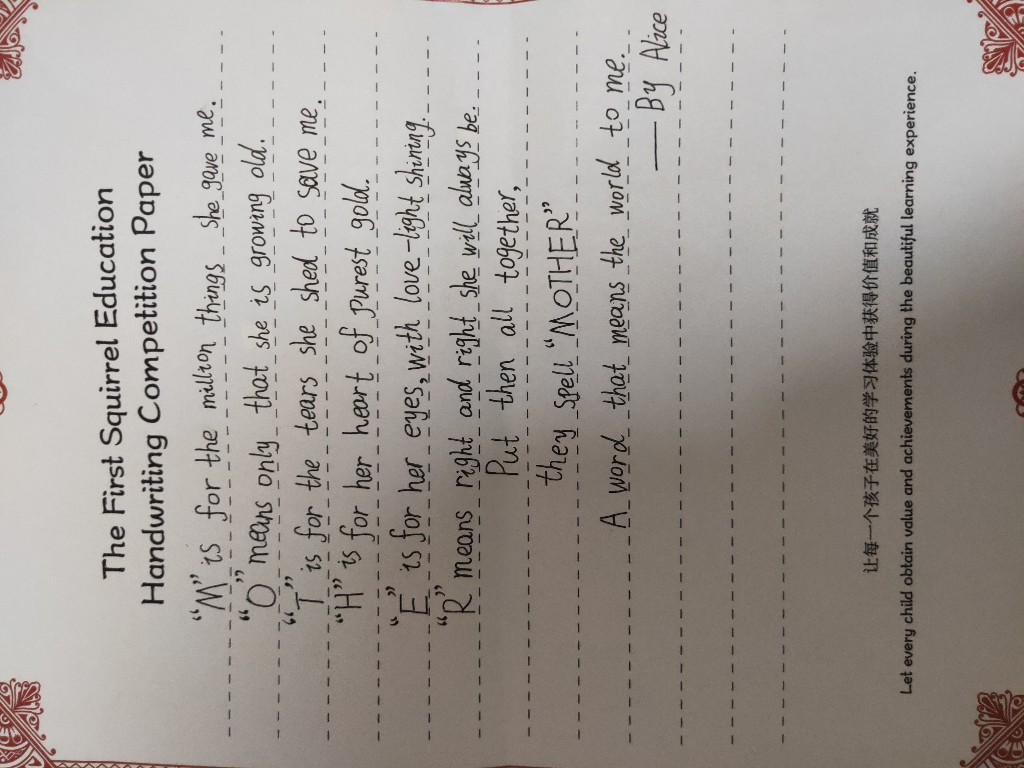 The First Squirrel Education
Handwriting Competition Paper
“M” is for the million things she gave me.
“O” means only that she is growing old.
“T” is for the tears she shed to save me.
“H” is for her heart of purest gold.
“E” is for her eyes, with love-light shining.
“R” means right and right she will always be.
Put then all together,
they spell “MOTHER”
A word that means the world to me.
——By Alice
让每一个孩子在美好的学习体验中获得价值和成就
Let every child obtain value and achievements during the beautiful learning experience.